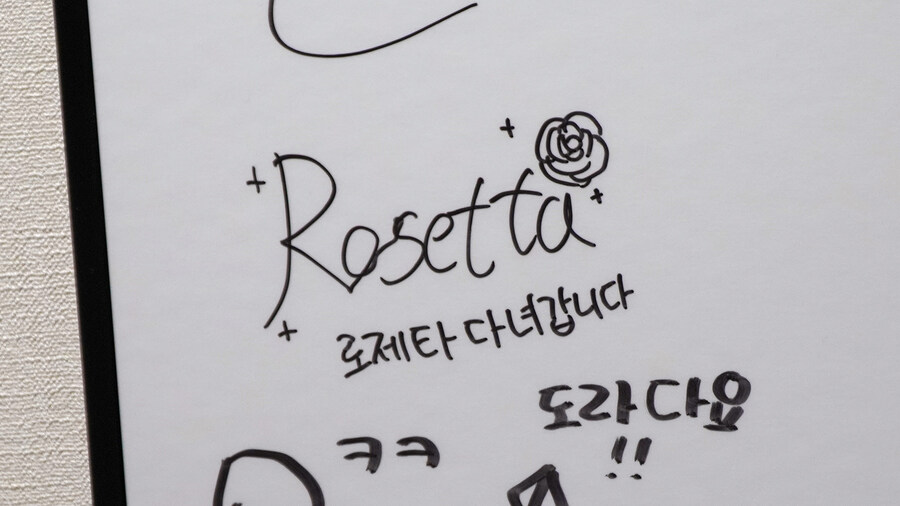 Rosetta
로제타 다녀갑니다
도라다요
!!
ㅋㅋ